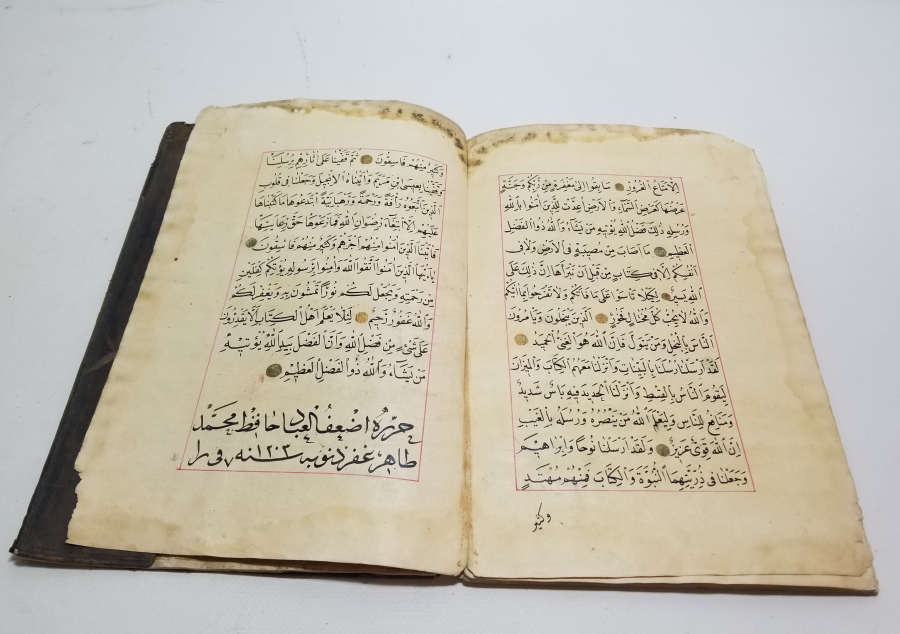 اِلَّا مَتَاعُ الْغُرُورِ سَابِقُوا اِلٰى مَغْفِرَةٍ مِنْ رَبِّكُمْ وَجَنَّةٍ
عَرْضُهَا كَعَرْضِ السَّمَاءِ وَالْاَرْضِ اُعِدَّتْ لِلَّذِينَ اٰمَنُوا بِاللّٰهِ
وَرُسُلِهِ ذٰلِكَ فَضْلُ اللّٰهِ يُؤْتِيهِ مَنْ يَشَاءُ وَاللّٰهُ ذُو الْفَضْلِ
الْعَظِيمِ مَا اَصَابَ مِنْ مُصِيبَةٍ فِي الْاَرْضِ وَلَا فِي
اَنْفُسِكُمْ اِلَّا فِي كِتَابٍ مِنْ قَبْلِ اَنْ نَبْرَاَهَا اِنَّ ذٰلِكَ عَلَى
اللّٰهِ يَسِيرٌ لِكَيْلَا تَأْسَوْا عَلٰى مَا فَاتَكُمْ وَلَا تَفْرَحُوا بِمَا اٰتٰيكُمْ
وَاللّٰهُ لَا يُحِبُّ كُلَّ مُخْتَالٍ فَخُورٍ اَلَّذِينَ يَبْخَلُونَ وَيَأْمُرُونَ
النَّاسَ بِالْبُخْلِ وَمَنْ يَتَوَلَّ فَاِنَّ اللّٰهَ هُوَ الْغَنِيُّ الْحَمِيدُ
لَقَدْ اَرْسَلْنَا رُسُلَنَا بِالْبَيِّنَاتِ وَاَنْزَلْنَا مَعَهُمُ الْكِتَابَ وَالْمِيزَانَ
لِيَقُومَ النَّاسُ بِالْقِسْطِ وَاَنْزَلْنَا الْحَدِيدَ فِيهِ بَأْسٌ شَدِيدٌ
وَمَنَافِعُ لِلنَّاسِ وَلِيَعْلَمَ اللّٰهُ مَنْ يَنْصُرُهُ وَرُسُلَهُ بِالْغَيْبِ
اِنَّ اللّٰهَ قَوِيٌّ عَزِيزٌ وَلَقَدْ اَرْسَلْنَا نُوحًا وَاِبْرَاهِيمَ
وَجَعَلْنَا فِي ذُرِّيَّتِهِمَا النُّبُوَّةَ وَالْكِتَابَ فَمِنْهُمْ مُهْتَدٍ
وَكَثِيرٌ
وَكَثِيرٌ مِنْهُمْ فَاسِقُونَ ثُمَّ قَفَّيْنَا عَلٰى اٰثَارِهِمْ بِرُسُلِنَا
وَقَفَّيْنَا بِعِيسَى ابْنِ مَرْيَمَ وَاٰتَيْنَاهُ الْاِنْجِيلَ وَجَعَلْنَا فِي قُلُوبِ
الَّذِينَ اتَّبَعُوهُ رَأْفَةً وَرَحْمَةً وَرَهْبَانِيَّةً ابْتَدَعُوهَا مَا كَتَبْنَاهَا
عَلَيْهِمْ اِلَّا ابْتِغَاءَ رِضْوَانِ اللّٰهِ فَمَا رَعَوْهَا حَقَّ رِعَايَتِهَا
فَاٰتَيْنَا الَّذِينَ اٰمَنُوا مِنْهُمْ اَجْرَهُمْ وَكَثِيرٌ مِنْهُمْ فَاسِقُونَ
يَا اَيُّهَا الَّذِينَ اٰمَنُوا اتَّقُوا اللّٰهَ وَاٰمِنُوا بِرَسُولِهِ يُؤْتِكُمْ كِفْلَيْنِ
مِنْ رَحْمَتِهِ وَيَجْعَلْ لَكُمْ نُورًا تَمْشُونَ بِهِ وَيَغْفِرْ لَكُمْ
وَاللّٰهُ غَفُورٌ رَحِيمٌ لِئَلَّا يَعْلَمَ اَهْلُ الْكِتَابِ اَلَّا يَقْدِرُونَ
عَلٰى شَيْءٍ مِنْ فَضْلِ اللّٰهِ وَاَنَّ الْفَضْلَ بِيَدِ اللّٰهِ يُؤْتِيهِ
مَنْ يَشَاءُ وَاللّٰهُ ذُو الْفَضْلِ الْعَظِيمِ
حرّره اضعف العباد حافظ محمد
طاهر غفر ذنوبه سنه ١٢٠٣ في را